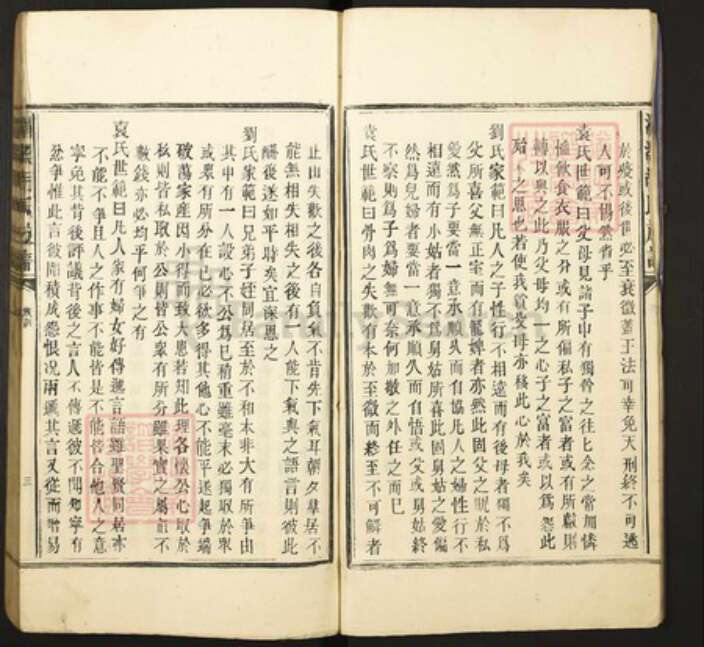 於疫或後世必至衰微蓋王法可幸免天刑終不可逃
人可不惕然省乎
袁氏世範曰父母見諸子中有獨貧之往往念之常加憐
恤飲食衣服之分或有所偏私子之富者或有所獻則
轉以與之此乃父母均一之心子之富者或以爲怨此
殆未之思也若使我貧父母亦移此心於我矣
劉氏家範曰凡人之子性行不相遠而有後母者獨不爲
父所喜父無正室而有寵婢者亦然此固父之昵於私
愛然爲子要當一意承順久而自協凡人之婦性行不
相遠而有小姑者獨不爲舅姑所喜此固舅姑之愛偏
然爲兒婦者要當一意承順久而自悟或父或舅姑終
不察則爲子爲婦無可奈何加敬之外任之而已
袁氏世範曰骨肉之失歡有本於至微而終至不可解者
止由失歡之後各自負氣不肯先下氣耳朝夕羣居不
能無相失相失之後有一人能下氣與之語言則彼此
酬復遂如平時矣宜深思之
劉氏家範曰兄弟子姪同居至於不和本非大有所爭由
其中有一人設心不公爲己稍重雖毫末必獨取於衆
或衆有所分在己必欲多得其他心不能平遂起爭端
破蕩家産因小得而致大患若知此理各懷公心取於
私則皆私取於公則皆公衆有所分雖果實之屬直不
數錢亦必均平何爭之有
袁氏世範曰凡人家有婦女好傳遞言語雖聖賢同居亦
不能不爭且人之作事不能皆是不能皆合他人之意
寧免其背後評議背後之言人不傳遞彼不聞知寧有
忿爭惟此言彼聞積成怨恨况兩遞其言又從而增易
三